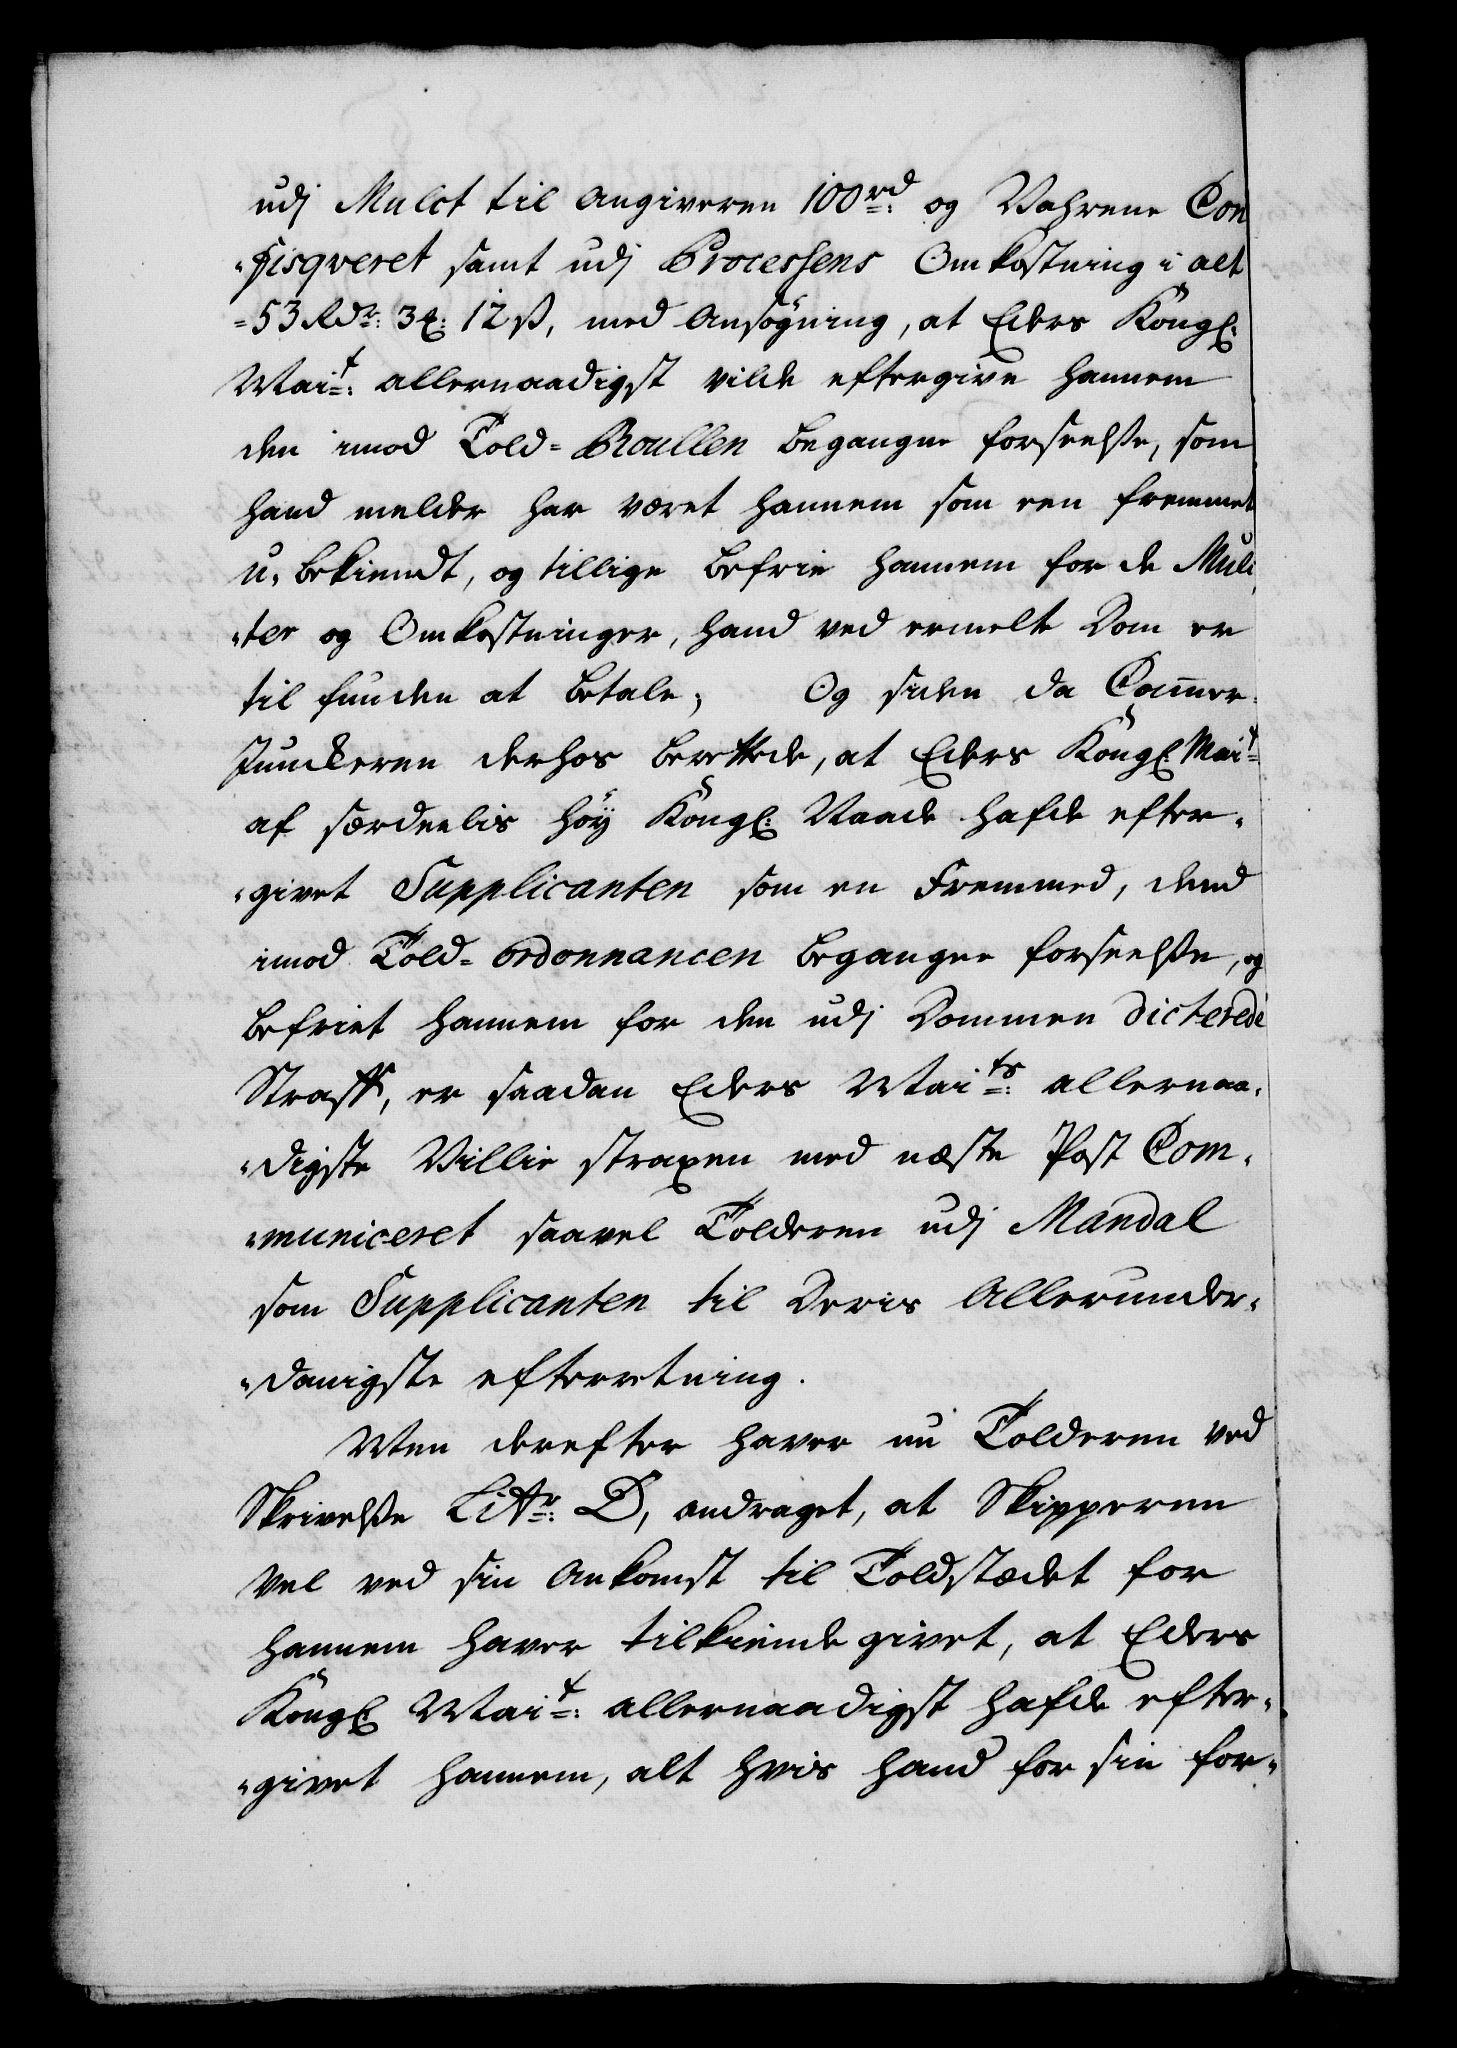 udj Mulct til Angiveren 100rd: og Vahrene Con
-fisqveret samt udj Processens Omkostning i alt
-53 Rdr: 3 ℔: 12 ß, med Ansögning, at Eders Kongl:
Mait: allernaadigst vilde eftergive hannem
den imod Told-Roullen begangne forseelße, som
hand melder har været hannem som een fremmet
u-bekiendt, og tillige befrie hannem for de Mulc
-ter og Omkostninger, hand ved ermelte Dom er
til funden at betale; Og siden da Cammer-
Junckeren derhos berettede, at Eders Kongl: Mait:
af særdeelis höy Kongl: Naade hafde efter-
-givet Supplicanten som en Fremmed, dend
imod Told-ordonnancen begangne forseelße, og
befriet hannem for den udj Dommen dicterede
Straff, er saadan Eders Maits: allernaa-
-digste Villie straxen med næste Post Com-
-municeret saavel Tolderen udj Mandal
som Supplicanten til Deris Allerunder-
-danigste efterretning.
Men derefter haver nu Tolderen ved
Skrivelße Littr: D, andraget, at Skipperen
vel ved sin Ankomst til Toldstædet for
hannem haver tilkiende givet, at Eders
Kongl: Mait: allernaadigst hafde efter-
-givet hannem, alt hvis hand for sin for-